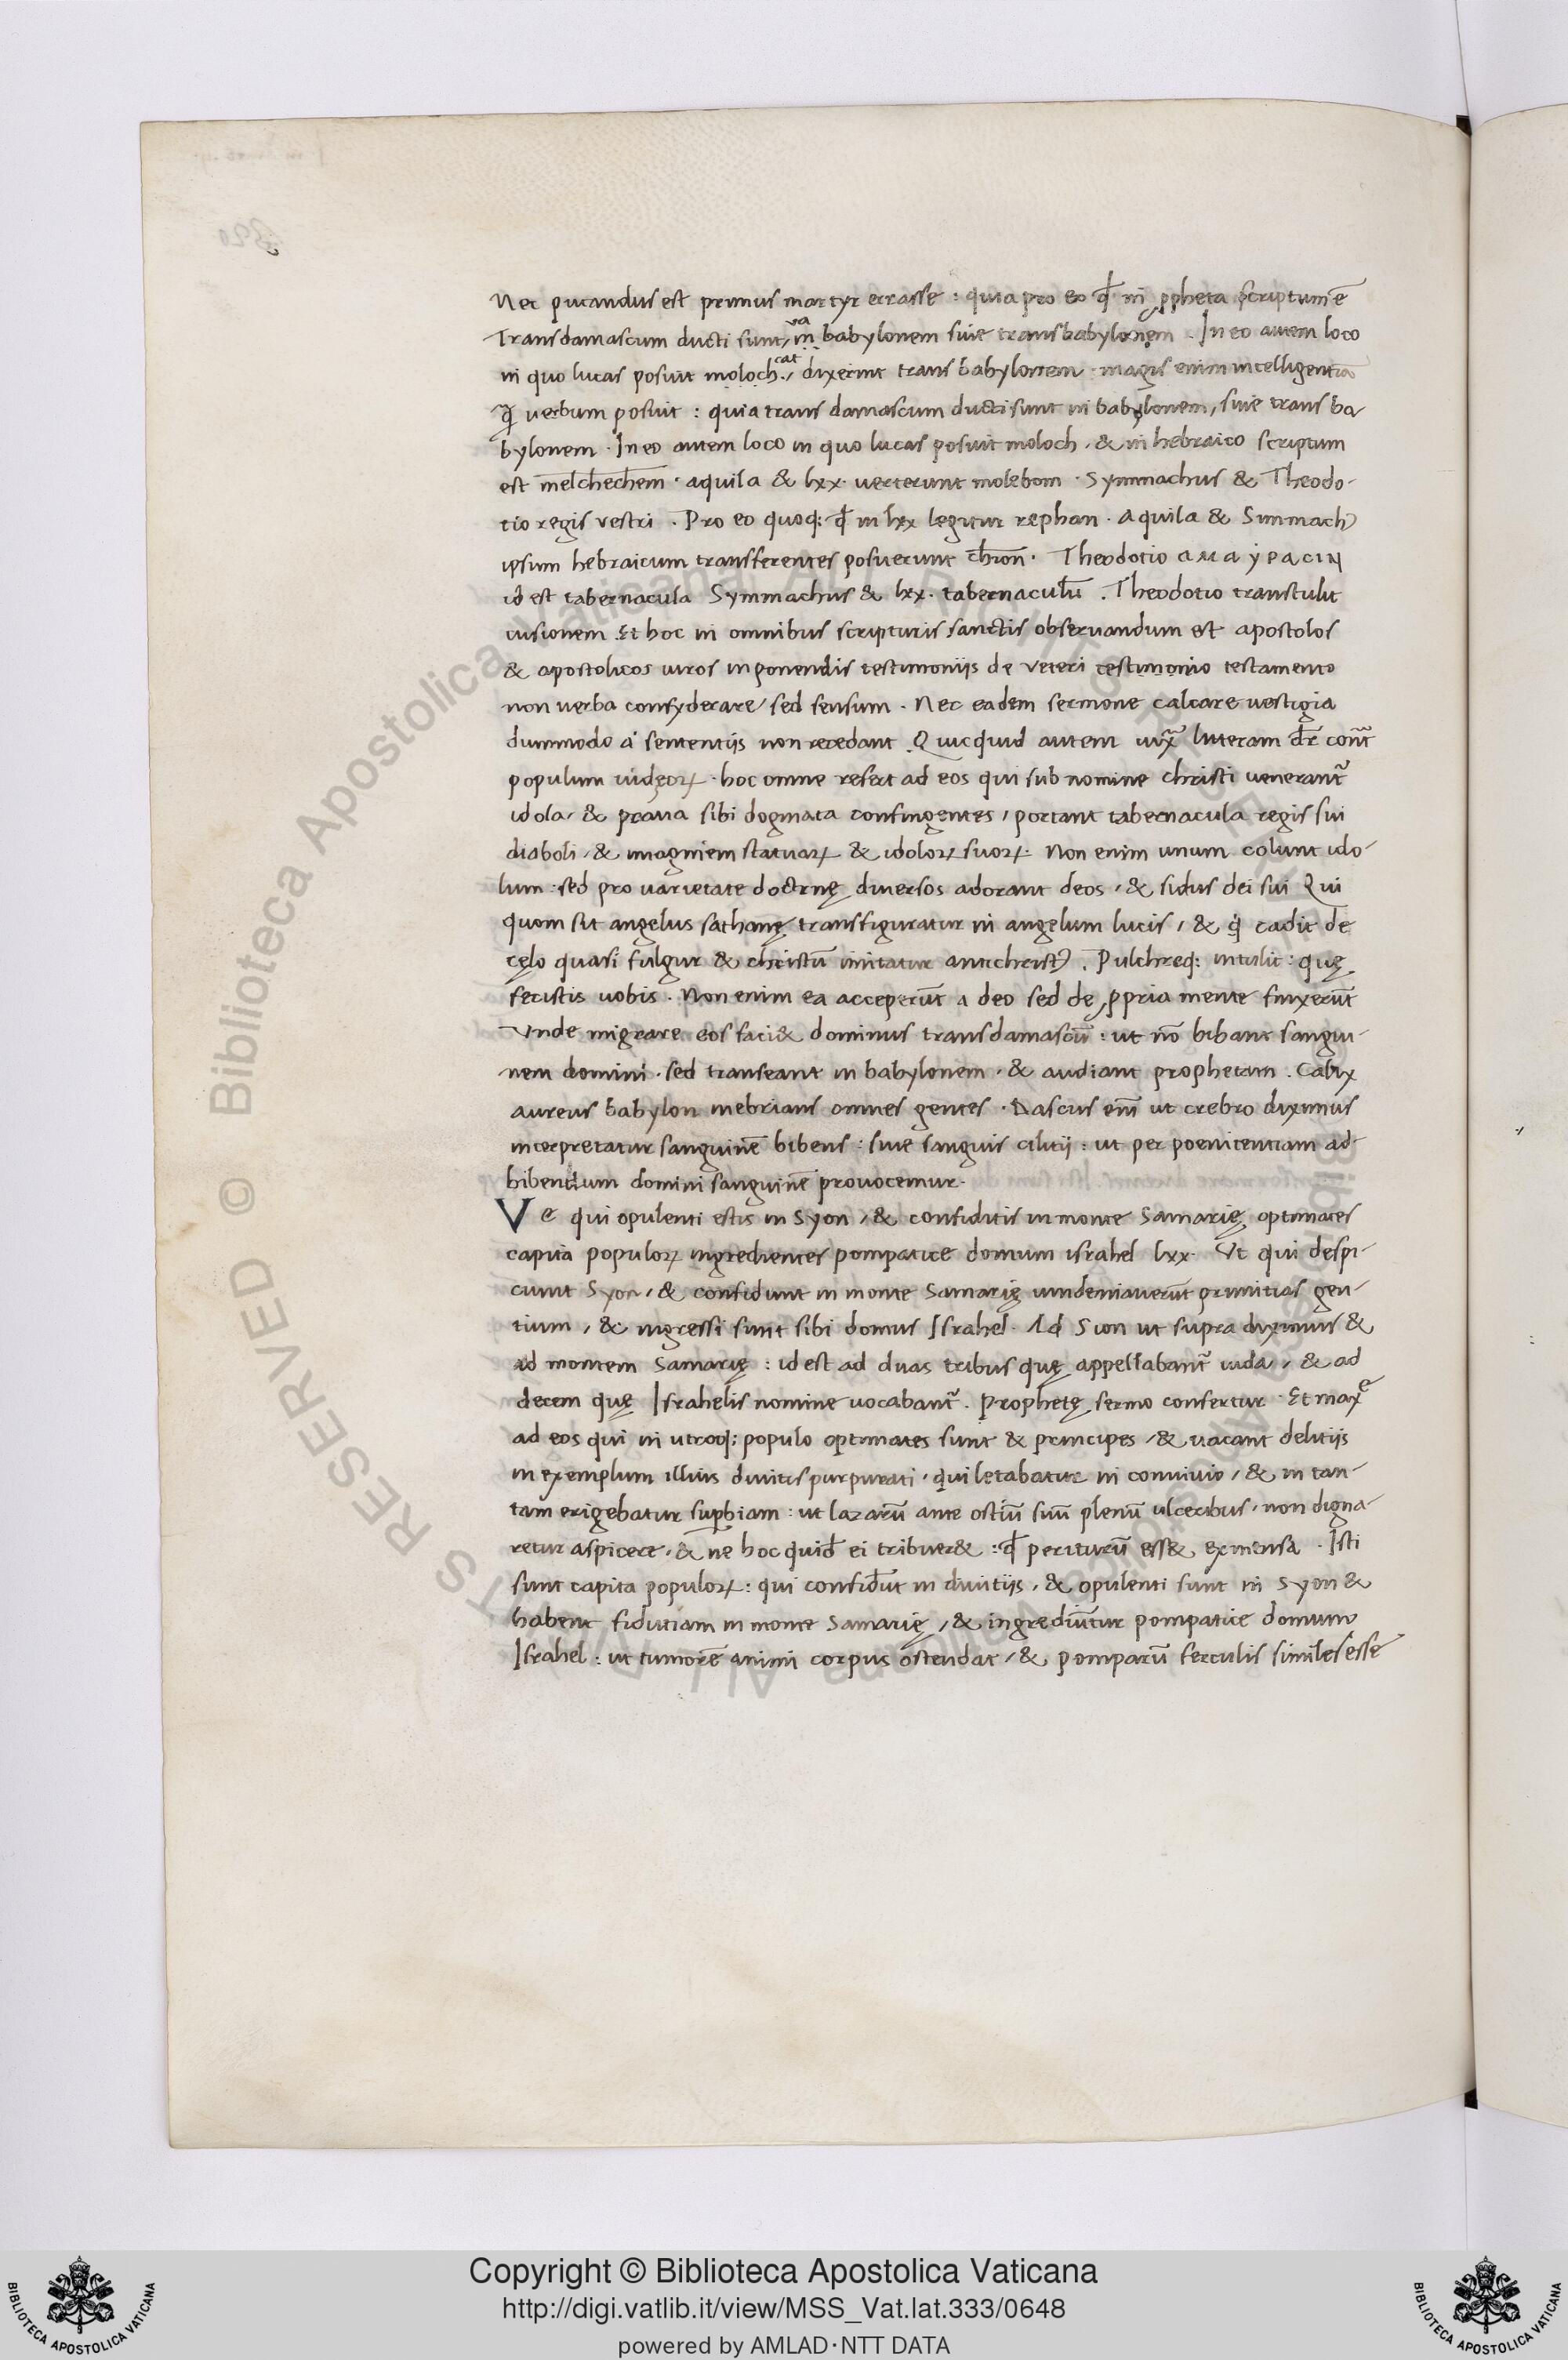 Nec putandus est primus martyr errasse : quia pro eo qđ in ꝓpheta scriptum ē
Transdamascum ducti sunt, in babylonem siue transbabylonem . In eo autem loco
in quo lucas posuit moloch ., dixerint trans babylonem . magis enim intelligentiā
verbum posuit : quia trans damascum ducti sunt in babylonem, siue trans ba
bylonem . In eo autem loco in quo lucas posuit moloch , & in hebraico scriptum
est melchechem . aquila & lxx . verterunt molebom . Symmachus & Theodo-
tio regis vestri . Pro eo quoq; qđ in lxx legitur rephan . Aquila & Simmachꝰ
ipsum hebraicum transferentes posuerunt chion . Theodotio
id est tabernacula Symmachus & lxx . tabernaculū . Theodotio transtulit
uisionem Et hoc in omnibus scripturis sanctis obseruandum est apostolos
& apostolicos uiros in ponendis testimoniis de veteri testimonio testamento
non verba consyderare, sed sensum . Nec eadem sermone calcare vestigia
dummodo a sententiis non recedant . Quicquid autem iuxta litteram dr̄ cont̄
populum iudęoꝝ . hoc omne refert ad eos qui sub nomine christi venerant᷑
idola, & praua sibi dogmata confingentes, portant tabernacula regis sui
diaboli, & imaginem statuaꝝ & idoloꝝ suoꝝ . Non enim unum colunt ido-
lum : sed pro uarietate doctrnę diuersos adorant deos , & sidus dei sui Qui
quom sit angelus sathanę transfiguratur in angelum lucis , & q cadit de
cęlo quasi fulgur & christū imitatur antichristꝰ . Pulchreq; intulit : quę
fecistis uobis . Non enim ea acceperūt a deo sed de ꝓpria mente finxerūt
Vnde migrare eos faci& dominus transdamascū : ut nō bibant sangui-
nem domini . sed transeant in babylonem . & audiant prophetam . Calix
aureus babylon inebrians omnes gentes . Dascus em̄ ut crebro diximus
interpretatur sanguinē bibens : siue sanguis cilitii : ut per poenitentiam ad
bibendum domini sanguinē prouocemur .
Ve qui opulenti estis in Syon , & confiditis in monte Samarię optimates
capita populoꝝ ingredientes pompatice domum israhel lxx . Vę qui despi-
ciunt Syon , & confidunt in monte Samarię uindemiauerūt primitias gen-
tium , & ingressi sunt sibi domus Israhel . Ad Sion ut supra diximus &
ad montem Samarię : id est ad duas tribus quę appellabant᷑ iuda , & ad
decem quę Israhelis nomine uocabant᷑ . Prophetę sermo confertur . Et maxe
ad eos qui in utroq; populo optimates sunt & principes , & uacant delitiis
in exemplum illius diuitis purpurati . qui letabatur in conuiuio , & in tan-
tam erigebatur supbiam : ut lazarū ante ostiū suū plenū ulceribus , non digna-
retur aspicere , & ne hoc quid ei tribuer& : qđ periturū ess& ex mensa . Isti
sunt capita populoꝝ : qui confidūt in diuitiis , & opulenti sunt in Syon &
habent fiduciam in monte Samarię , & ingrediūtur pompatice domum
Israhel : ut tumorē animi corpus ostendat , & pomparū ferculis similes esse
Copyright © Biblioteca Apostolica Vaticana
http://digi.vatlib.it/view/MSS_Vat.lat.333/0648
powered by AMLAD·NTT DATA